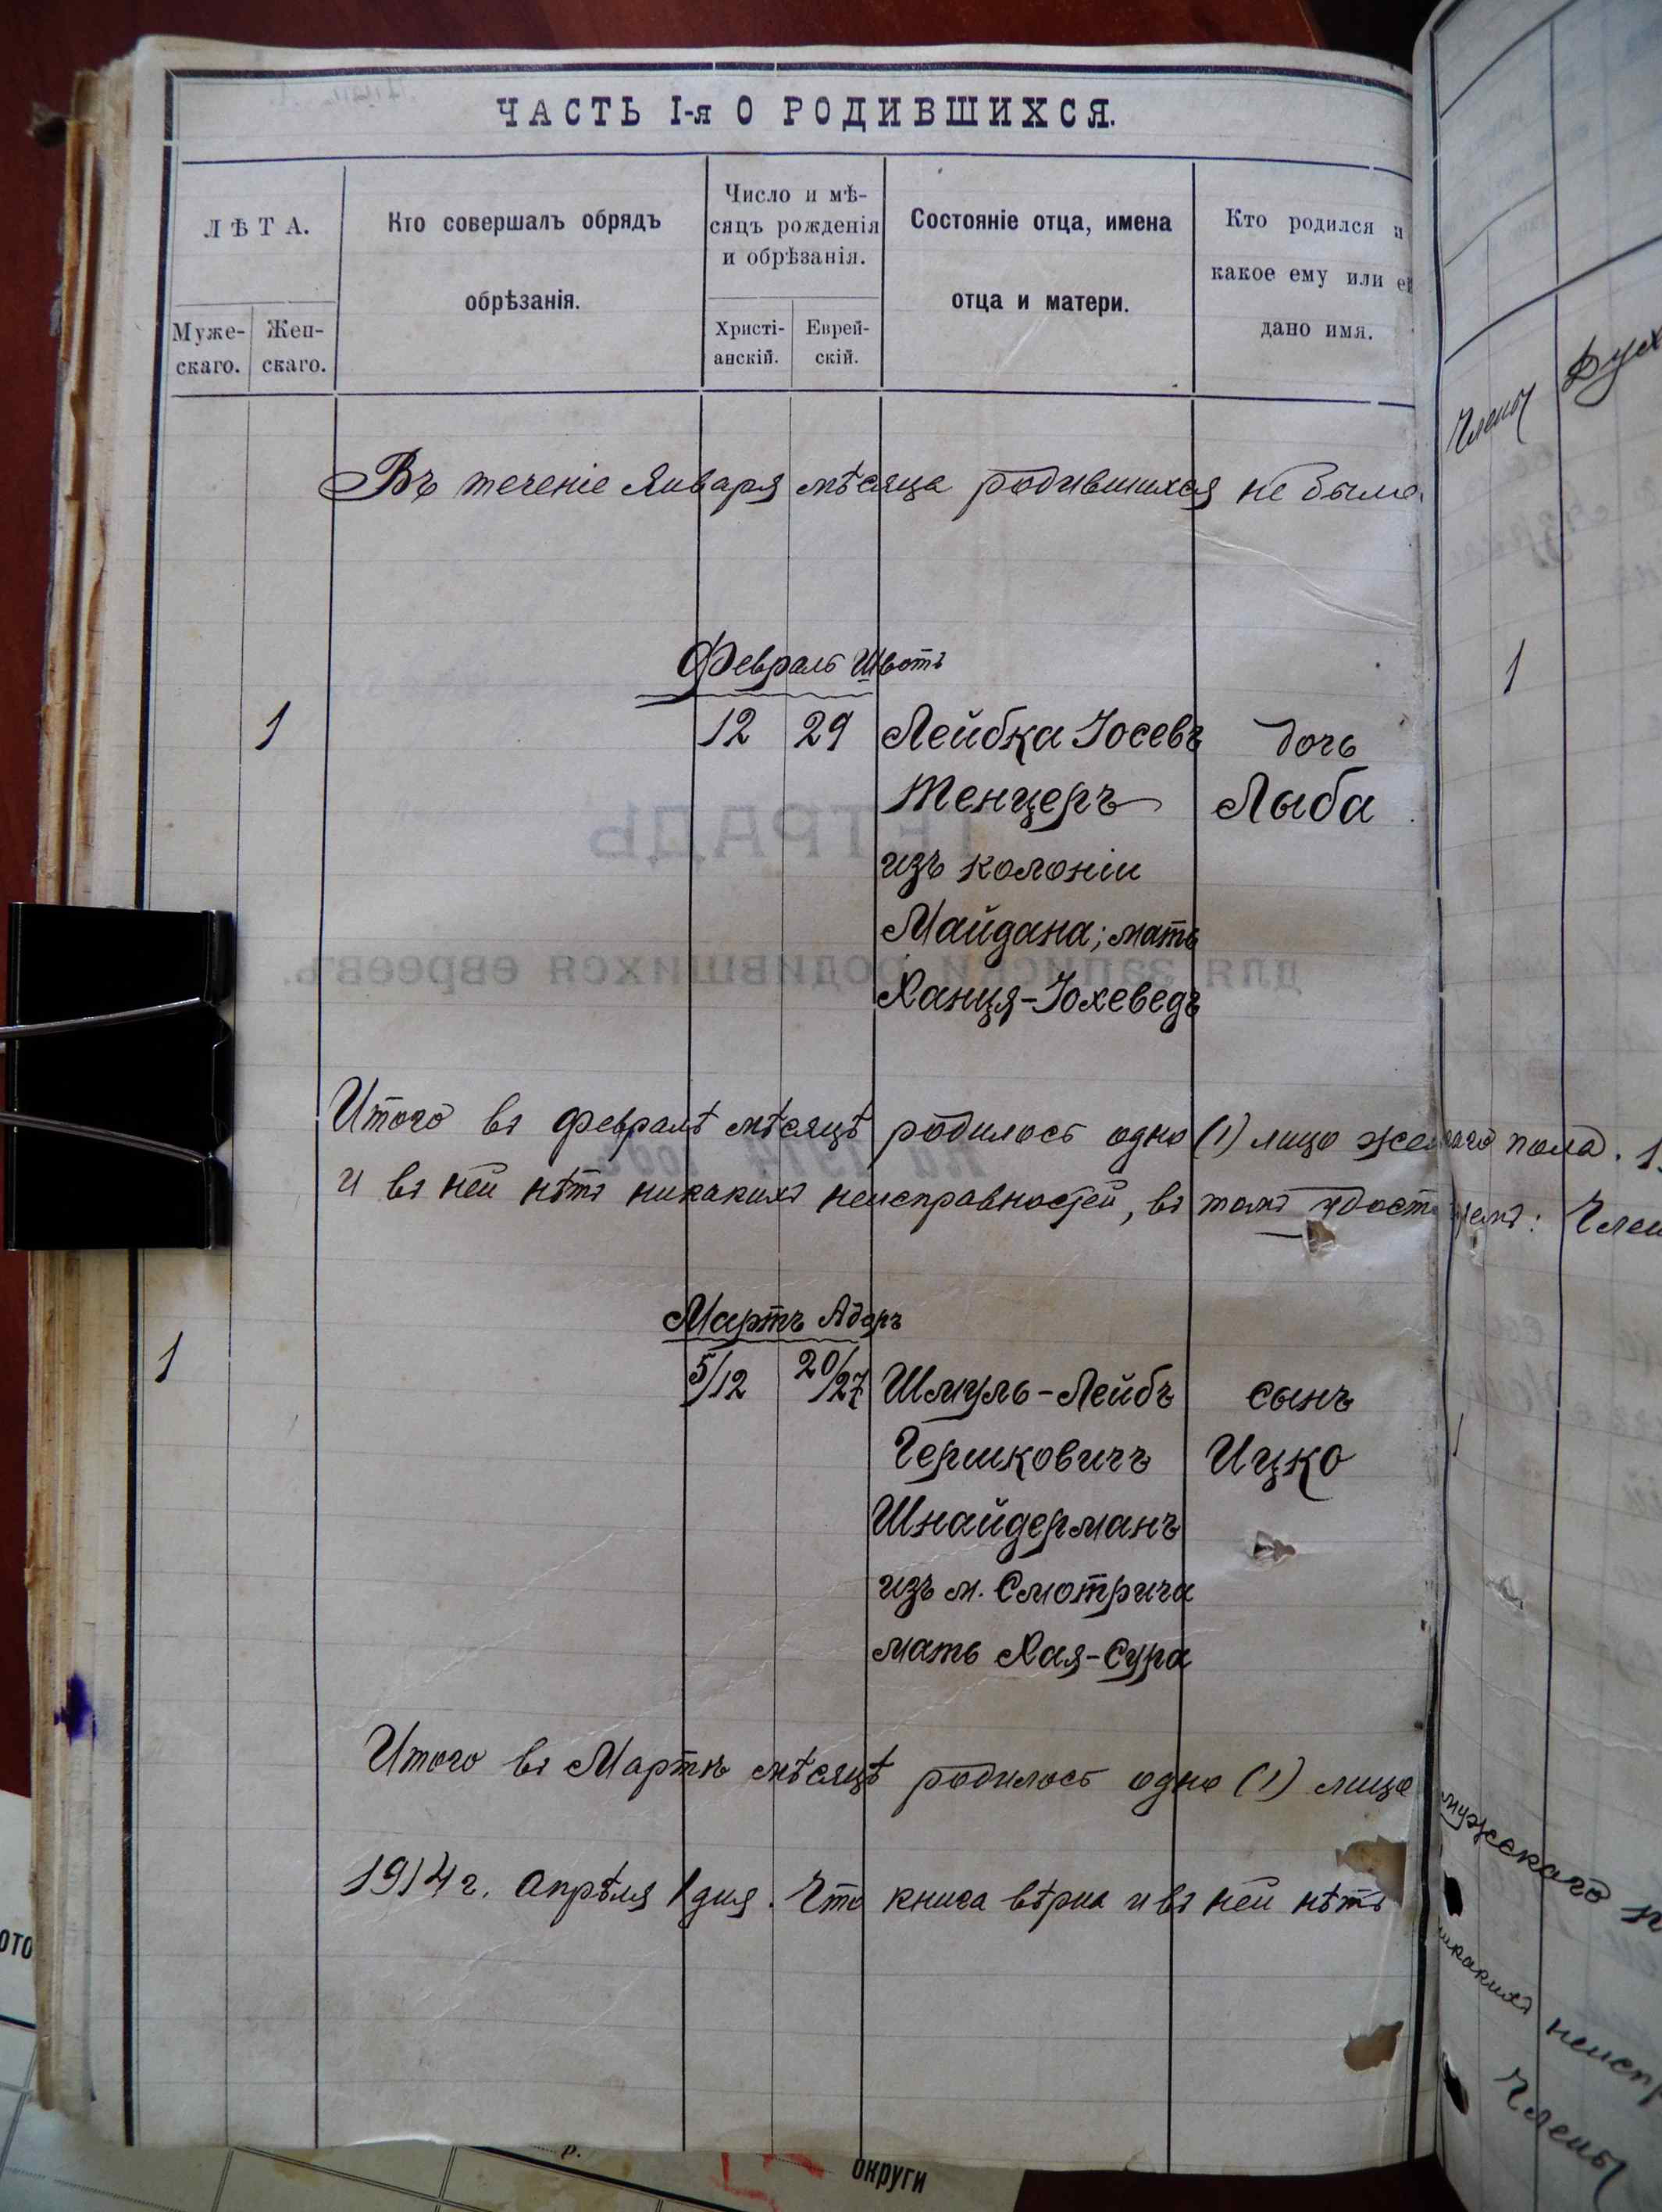 ЧАСТЬ I-я О РОДИВШИХСЯ.
ЛѢТА.
Муже-
скаго.
Жен-
скаго.
Кто совершалъ обрядъ
обрѣзанія.
Число и мѣ-
сяцъ рожденія
и обрѣзанія.
Христі-
анскій.
Еврей-
скій.
Состояніе отца, имена
отца и матери.
Кто родился и
какое ему или ей
дано имя.
Въ теченіе Января мѣсяца родившихся не было.
Февраль Шватъ
1 12 29 Лейбка Іосевъ дочь
Тенцеръ Лыба
изъ колоніи
Майдана; мать
Ханця-Іохеведъ
ТЕТРАДЬ
для записки родившихся евреевъ.
на 1914 годъ
Итого въ Февралѣ мѣсяцѣ родилось одно (1) лицо пола. 1
и въ ней нѣтъ никакихъ неисправностей, въ томъ Член
Мартъ Адаръ
1 5/12 20/27 Шмуль-Лейбъ сынъ
Гершковичъ Ицко
Шнайдерманъ
изъ м. Смотрича
мать Хая-Сура
Итого въ Мартѣ мѣсяцѣ родилось одно (1) лицо мужескаго п
1914 г. Апрѣля 1 дня. Что книга вѣрна и въ ней нѣтъ никакихъ неиспр
Члены
Члены Дух
1
ото
р.
округи